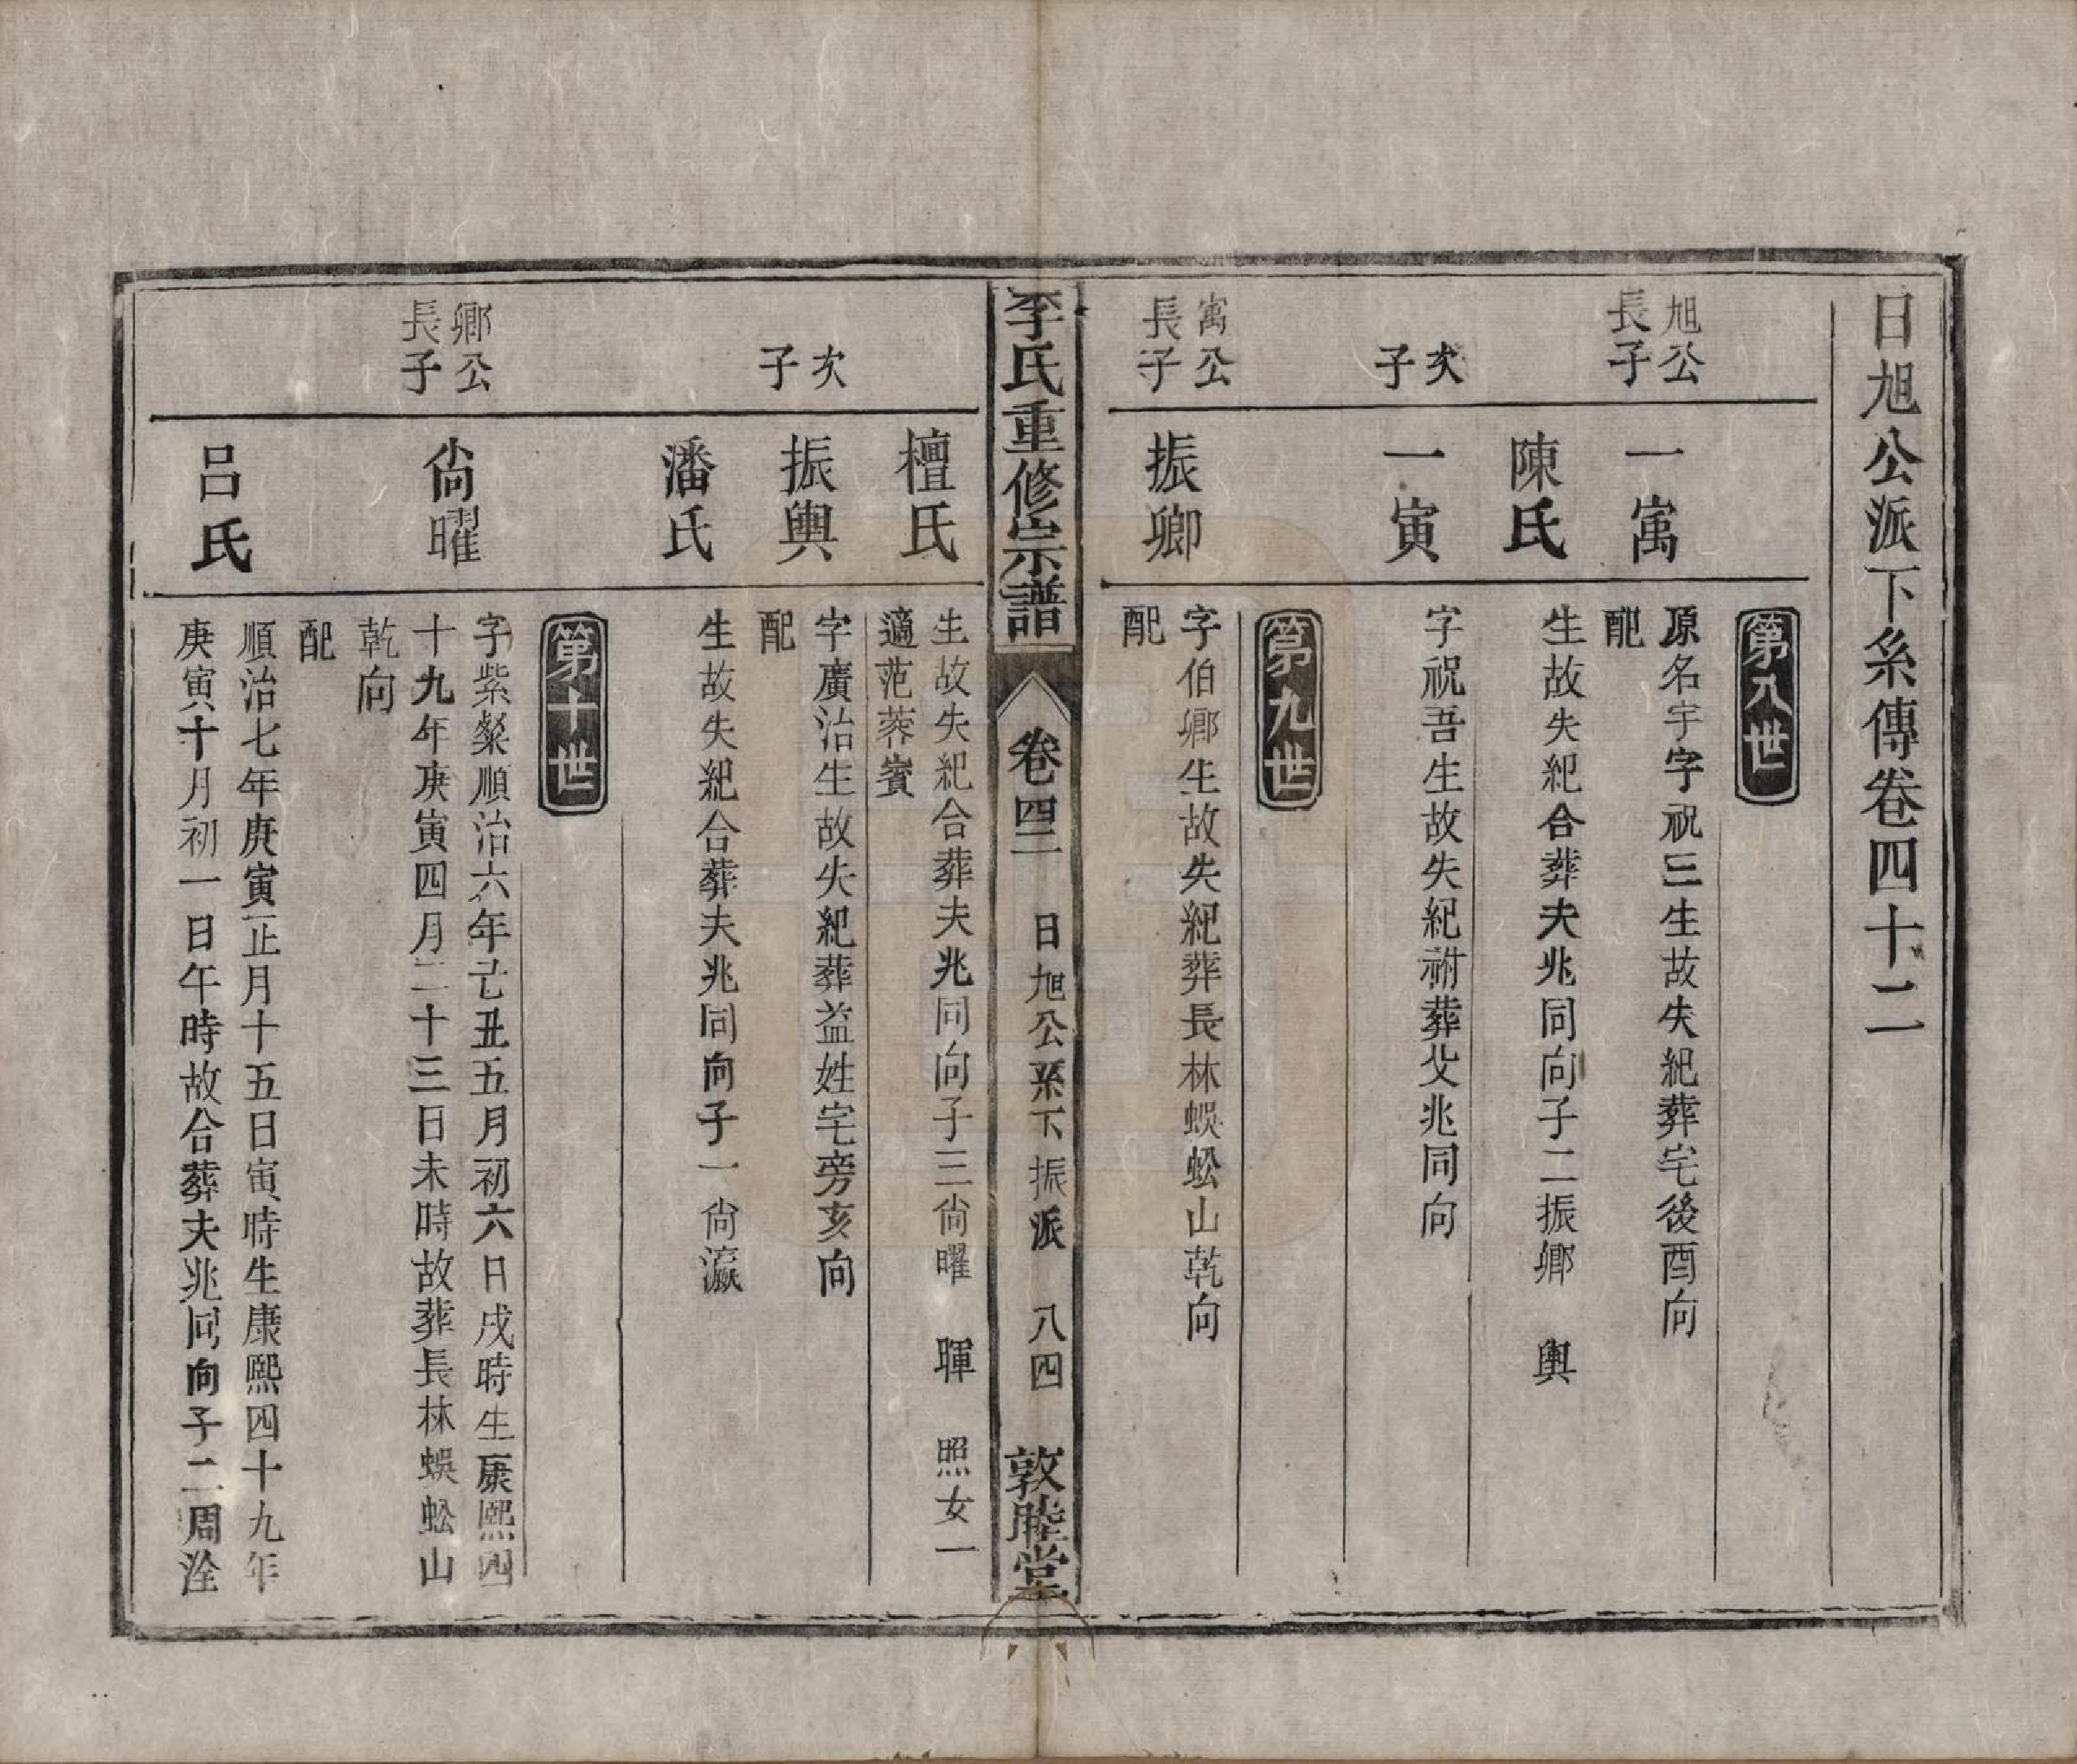 日旭公派下糸傳卷四十二
第八世
旭公
長子
一寓
原名宇字祝三生故失紀葬宅後酉向
配
陳氏
生故失紀合葬夫兆同向子二振卿　輿
次
子
一寅
字祝吾生故失紀祔葬父兆同向
第九世
寓公
長子
振卿
字伯卿生故失紀葬長林蜈蚣山乾向
配
李氏重修宗譜
卷四二
日旭公系下振派
八四
敦睦堂
檀氏
生故失紀合葬夫兆同向子三尙曜　暉　照女一
適范蓉賓
次
子
振輿
字廣治生故失紀葬益姓宅旁亥向
配
潘氏
生故失紀合葬夫兆同向子一尙瀛
第十世
卿公
長子
尙曜
字紫粲順治六年己丑五月初六日戌時生康熙四
十九年庚寅四月二十三日未時故葬長林蜈蚣山
乾向
配
呂氏
順治七年庚寅正月十五日寅時生康熙四十九年
庚寅十月初一日午時故合葬夫兆同向子二周洤